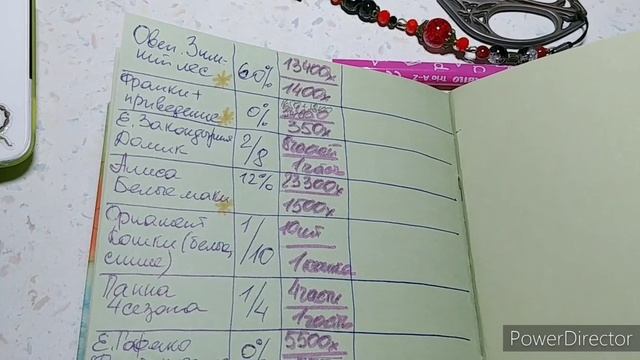 Овен. Зим-
ний лес 60% 13400х
1400х
Франки +
приведение 0%
350х
Е. Закондырин
Домик 2/8
1 часть
Алиса
Белые маки 12% 23300х
1500х
Орнамент
Кошки (белые, синие) 1/10 10шт
1 кошка
Панна
4 сезона 1/4 4 части
1 часть
0% 5500х
PowerDirector